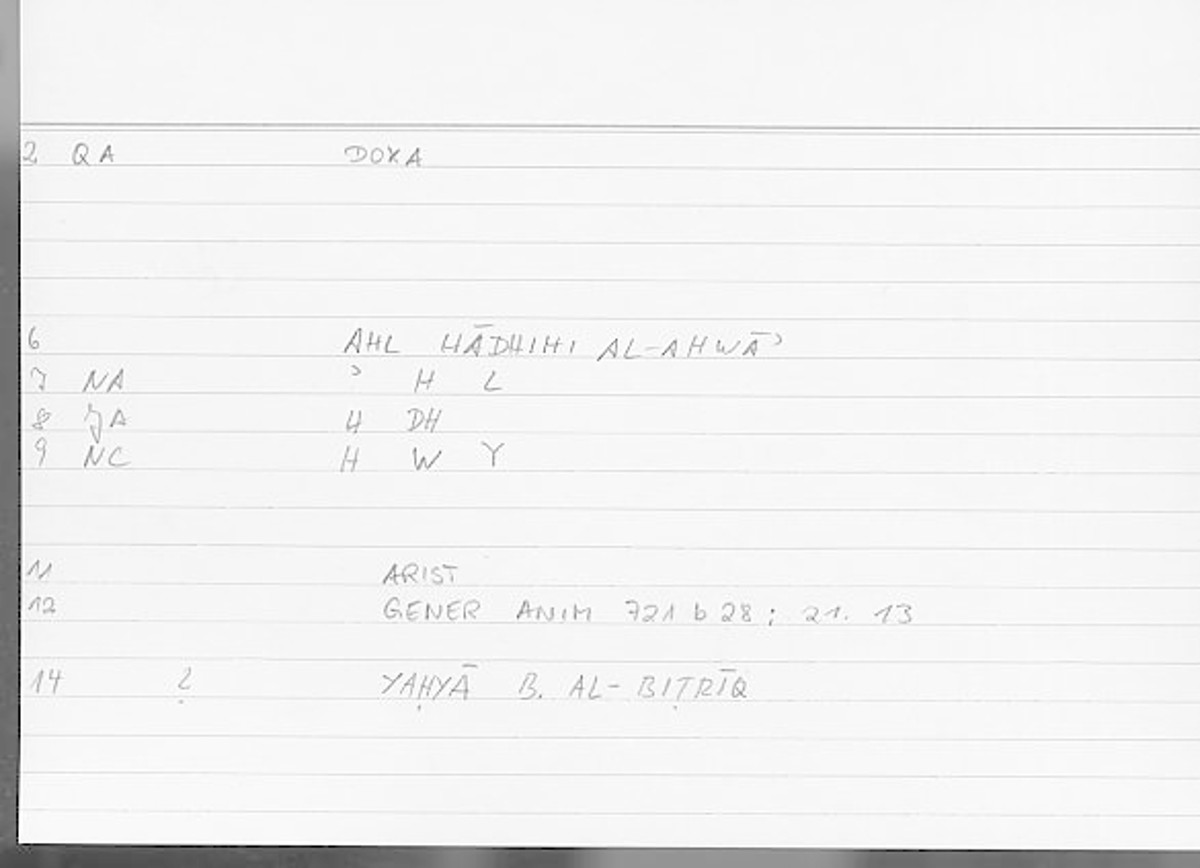 2 QA DOXA
6 AHL HĀDHIHI AL-AHWĀʾ
7 NA ʾ H L
8 JA H DH
9 NC H W Y
11 ARIST
12 GENER ANIM 721 b 28; 21. 13
14 ? YAḤYĀ B. AL-BIṬRĪQ